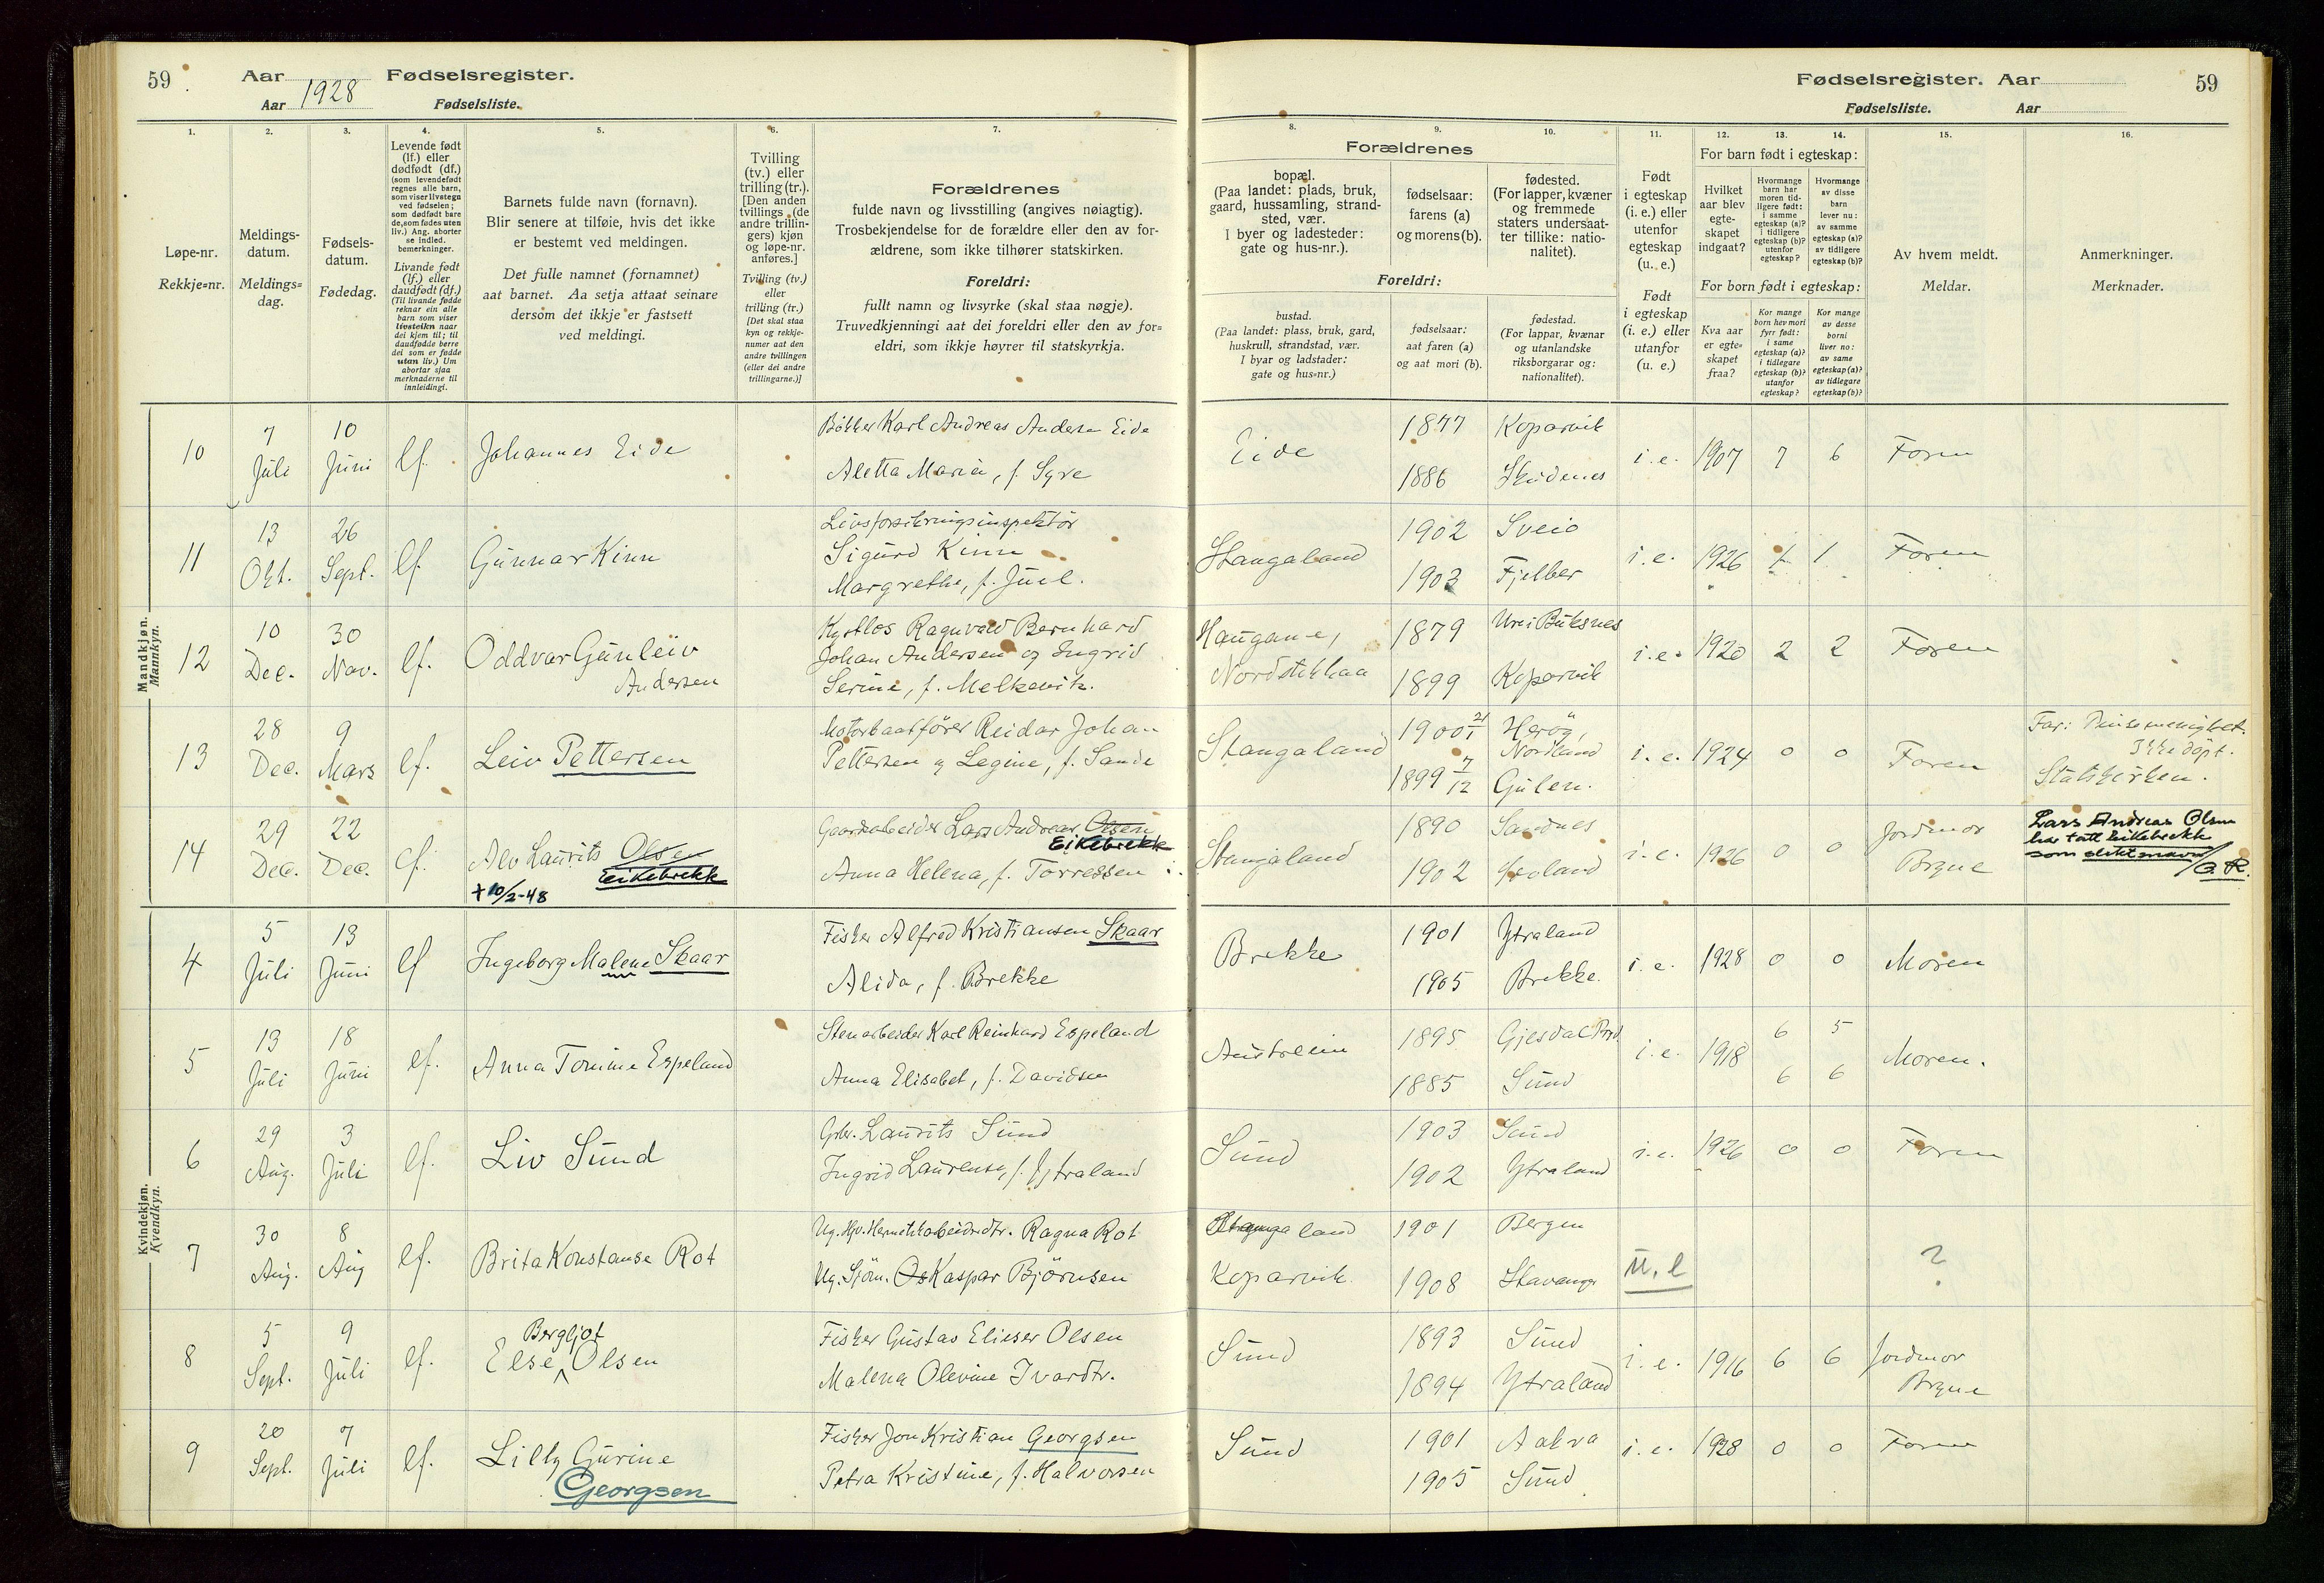 59 Aar Fødselsregister.
Aar 1928 Fødselsliste.
Fødselsregister. Aar 59
Fødselsliste. Aar
1. 2. 3. 4. 5. 6. 7.
Løpe-nr.
Rekkje=nr.
Meldings-
datum.
Meldings=
dag.
Fødsels-
datum.
Fødedag.
Levende født
(lf.) eller
dødfødt (df.)
(som levendefødt
regnes alle barn,
som viser livstegn
ved fødselen;
som dødfødt bare
de, som fødes uten
liv.) Ang. aborter
se indled.
bemerkninger.
Livande født
(lf.) eller
daudfødt (df.)
(Til livande fødde
reknar ein alle
barn som viser
livsteikn naar
dei kjem til; til
daudfødde berre
dei som er fødde
utan liv.) Um
abortar sjaa
merknaderne til
innleidingi.
Barnets fulde navn (fornavn).
Blir senere at tilføie, hvis det ikke
er bestemt ved meldingen.
Det fulle namnet (fornamnet)
aat barnet. Aa setja attaat seinare
dersom det ikkje er fastsett
ved meldingi.
Tvilling
(tv.) eller
trilling (tr.).
[Den anden
tvillings (de
andre trillin-
gers) kjøn
og løpe-nr.
anføres.]
Tvilling (tv.)
eller
trilling (tr.)
[Det skal staa
kyn og rekkje-
numer aat den
andre tvillingen
(eller dei andre
trillingarne.)]
Forældrenes
fulde navn og livsstilling (angives nøiagtig).
Trosbekjendelse for de forældre eller den av for-
ældrene, som ikke tilhører statskirken.
Foreldri:
fullt namn og livsyrke (skal staa nøgje).
Truvedkjenningi aat dei foreldri eller den av for=
eldri, som ikkje høyrer til statskyrkja.
8. 9. 10. 11. 12. 13. 14. 15. 16.
Forældrenes
bopæl.
(Paa landet: plads, bruk,
gaard, hussamling, strand-
sted, vær.
I byer og ladesteder:
gate og hus-nr.).
fødselsaar:
farens (a)
og morens (b).
fødested.
(For lapper, kvæner
og fremmede
staters undersaat-
ter tillike: natio-
nalitet).
Foreldri:
bustad.
(Paa landet: plass, bruk, gard,
huskrull, strandstad, vær.
I byar og ladstader:
gate og hus=nr.)
fødselsaar:
aat faren (a)
og aat mori (b).
fødestad.
(For lappar, kvænar
og utanlandske
riksborgarar og:
nationalitet).
Født
i egteskap
(i. e.) eller
utenfor
egteskap
(u. e.)
Født
i egteskap
(i. e.) eller
utanfor
(u. e.)
For barn født i egteskap:
Hvilket
aar blev
egte-
skapet
indgaat?
Hvormange
barn har
moren tid-
ligere født:
i samme
egteskap (a)?
i tidligere
egteskap (b)?
utenfor
egteskap?
Hvormange
av disse
barn
lever nu:
av samme
egteskap (a)?
av tidligere
egteskap (b)?
For born født i egteskap:
Kva aar
er egte=
skapet
fraa?
Kor mange
born hev mori
fyrr født:
i same
egteskap (a)?
i tidlegare
egteskap (b)?
utanfor
egteskap?
Kor mange
av desse
borni
liver no:
av same
egteskap (a)?
av tidlegare
egteskap (b)?
Av hvem meldt.
Meldar.
Anmerkninger.
Merknader.
Mandkjøn.
Mannkyn.
10 7 Juli 10 Juni lf. Johannes Eide
Bökker Karl Andreas Andersen Eide
Aletta Maria, f. Syre
Eide 1877 Kopervik
1886 Skudenes
i. e. 1907 7 6 Faren
11 13 Okt. 26 Sept. lf. Gunnar Kinn
Livsforsikringsinspektör
Sigurd Kinn
Margrethe, f. Juul.
Stangaland 1902 Sveio
1903 Fjelber
i. e. 1926 1 1 Faren
12 10 Dec. 30 Nov. lf. Oddvar Gunleiv
Andersen
Ragnvald Bernhard
Johan Andersen og Ingrid
Serine, f. Melkevik.
Haugane, 1879 Buksnes
Nordstokkaa 1899 Kopervik
i. e. 1920 2 2 Faren
13 28 Dec. 9 Mars lf. Leiv Pettersen
Motorbaatförer Reidar Johan
Pettersen og Legine, f. Sande
Stangaland 1900 Heröy,
Nordland
1899 7/12 Gulen.
i. e. 1924 0 0 Faren
Far: Pinsemenighet.
Ikke döpt.
Statskirken.
14 29 Dec. 22 Dec. lf. Alv Laurits Olsen
Eikebrekk
+ 10/2-48
Gaardsarbeider Lars Andreas Olsen
Eikebrekk
Anna Helena, f. Torressen
Stangaland 1890 Sandnes
1902
i. e. 1926 0 0 Jordmor
Bryne
Lars Andreas Olsen
har tatt Eikebrekk
som slektsnavn
Kvindekjøn.
Kvendkyn.
4 5 Juli 13 Juni lf Ingeborg Malene Skaar
Fisker Alfred Kristiansen Skaar
Alida, f. Brekke
Brekke 1901 Ytraland
1905 Brekke.
i. e. 1928 0 0 Moren
5 13 Juli 18 Juni lf. Anna Tomine Espeland
Stenarbeider Karl Reinhard Espeland
Anna Elisabet, f. Davidsen
Austreim 1895 Gjesdal
1885 Sund
i. e. 1918 6 5
6 6
Moren.
6 29 Aug. 3 Juli lf. Liv Sund
Gbr. Laurits Sund
Ingrid Laurense, f. Ytraland
Sund 1903 Sund
1902 Ytraland
i. e. 1926 0 0 Faren
7 30 Aug. 8 Aug lf. Brita Konstanse Rot
Ug. Ragna Rot
Ug. Sjöm. Kaspar Björnsen
Stangaland 1901 Bergen
Kopervik. 1908 Stavanger
u. e ?
8 5 Sept. 9 Juli lf. Bergljot
Else Olsen
Fisker Gustav Elieser Olsen
Malena Olevine Ivardtr.
Sund 1893 Sund
1894 Ytraland
i. e. 1916 6 6 Jordmor
Bryne
9 20 Sept. 7 Juli lf. Lilly Gurine
Georgsen
Fisker Jon Kristian Georgsen
Petra Kristine, f. Halvorsen
Sund 1901 Aakra
1905 Sund
i. e. 1928 0 0 Faren